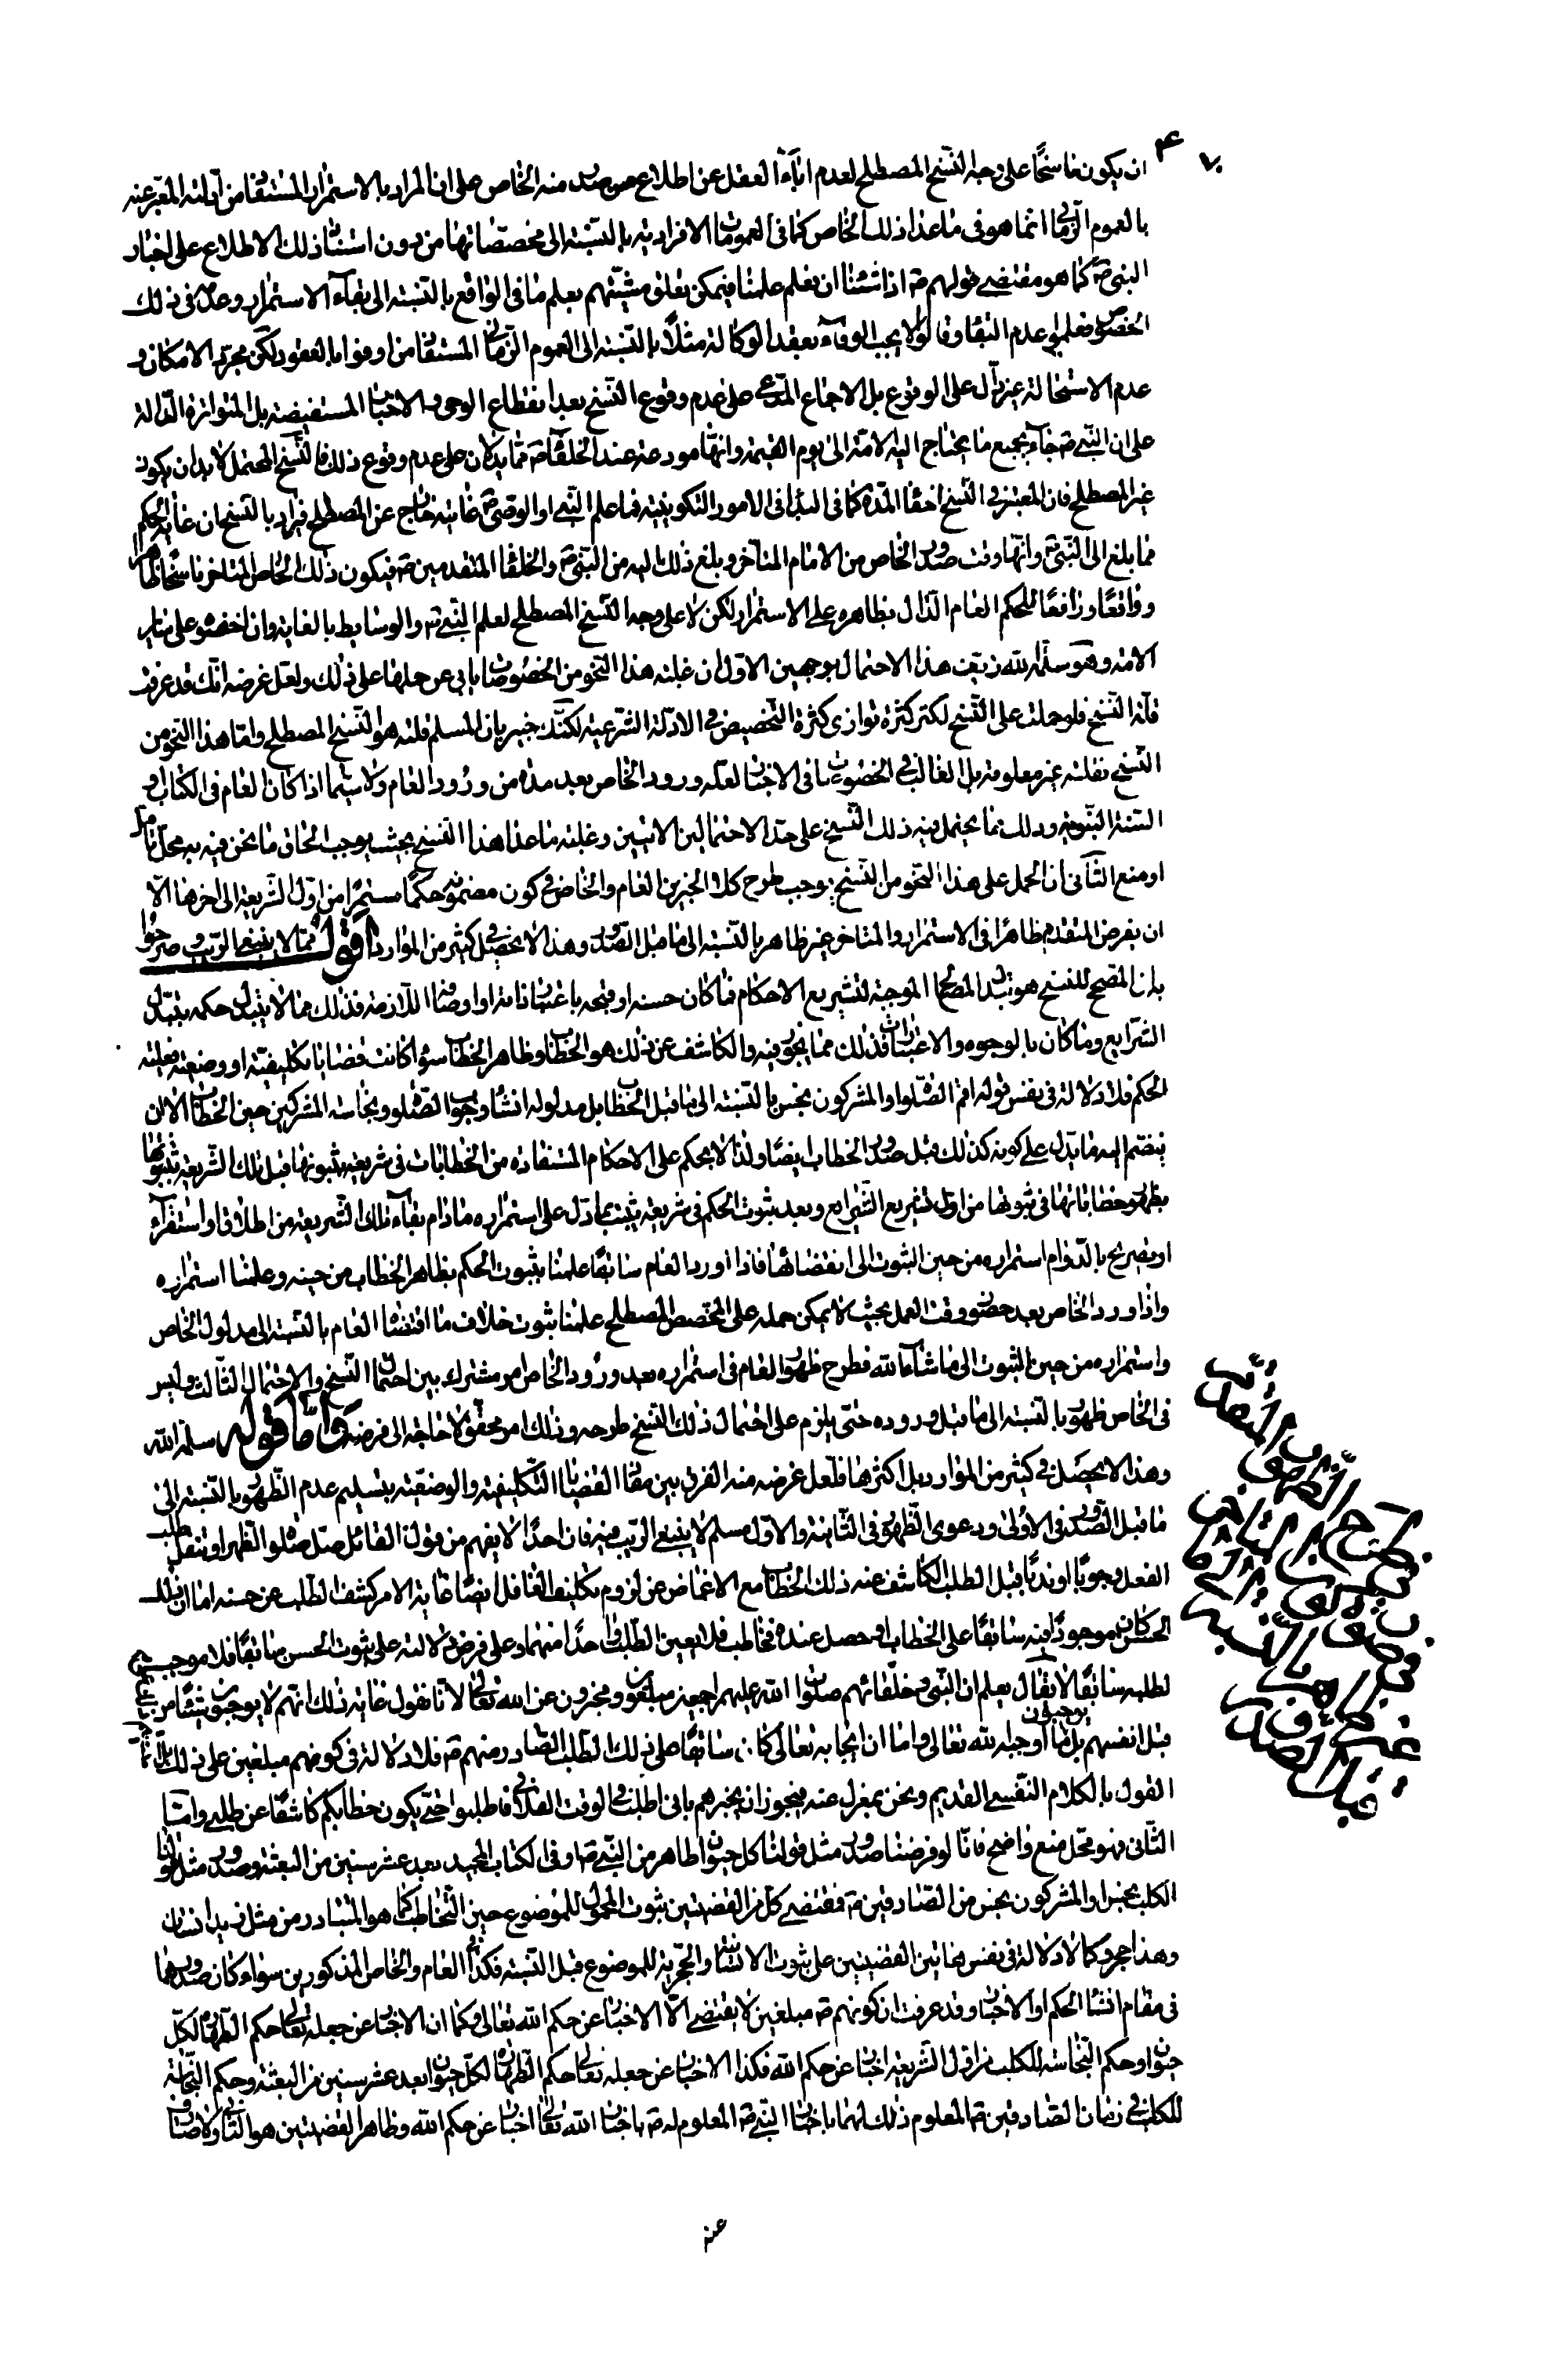 ان يكون ناسخًا على وجه النسخ المصطلح لعدم اباء العقل عن اطلاع من صدر منه الخاص على ان المراد بالاستمرار المستفاد من ادلته المعبر عنه
بالعموم الزماني انما هو في ما عدا ذلك الخاص كما في العمومات الافرادية بالنسبة الى مخصصاتها من دون استناد ذلك الاطلاع على اخبار
النبي ص كما هو مقتضى قولهم ع اذا شئنا ان نعلم علمنا فيمكن تعلق مشيتهم بعلم ما في الواقع بالنسبة الى بقاء الاستمرار وعدمه في ذلك
الخصوص فعلموا عدم البقاء وقالوا لا يجب الوفاء بعقد الوكالة مثلًا بالنسبة الى العموم الزماني المستفاد من اوفوا بالعقود لكن مجرد الامكان و
عدم الاستحالة غير دال على الوقوع بل الاجماع المدعى على عدم وقوع النسخ بعد انقطاع الوحي والاخبار المستفيضة بل المتواترة الدالة
على ان النبي ص جاء بجميع ما يحتاج اليه الامة الى يوم القيمة وانها مودعة عند الخلفاء ع مما يدلان على عدم وقوع ذلك فالنسخ المحتمل لا بد ان يكون
غير المصطلح فان المعتبر في النسخ اخفاء المدة كما في البداء في الامور التكوينية فما علم النبي او الوصي ع غايته خارج عن المصطلح فيراد بالنسخ ان غاية الحكم
مما بلغ الى النبي ص وانها وقت صدور الخاص من الامام المتاخر وبلغ ذلك اليه من النبي ص والخلفاء المتقدمين ع فيكون ذلك الخاص المتاخر ناسخًا ظاهرا
ودافعًا ورافعًا للحكم العام الدال بظاهره على الاستمرار لكن لا على وجه النسخ المصطلح لعلم النبي ص والوسايط بالغاية وان اخفوه على ساير
الامة وهو سلمه الله زيف هذا الاحتمال بوجهين الاول ان غلبة هذا النحو من الخصوصات يابى عن حملها على ذلك ولعل غرضه انك قد عرفت
قلة النسخ فلو حملت على النسخ لكثر كثرة توازي كثرة التخصيص في الادلة الشرعية لكنك خبير بان المسلم قلته هو النسخ المصطلح واما هذا النحو من
النسخ فقلته غير معلومة بل الغالب في الخصوصات في الاخبار لعله ورود الخاص بعد مدة من ورود العام ولا سيما اذا كان العام في الكتاب و
السنة النبوية وذلك مما يحتمل فيه ذلك النسخ على حد الاحتمالين الاتيين وغلبة ما عدا هذا النسخ بحيث يوجب الحاق ما نحن فيه به محل تامل
او منع الثاني ان الحمل على هذا النحو من النسخ يوجب طرح كلا الخبرين العام والخاص في كون مضمونه حكمًا مستمرًا من اول الشريعة الى اخرها الا
ان يفرض المتقدم ظاهرًا في الاستمرار والمتاخر غير ظاهر بالنسبة الى ما قبل الصدور وهذا لا يحصل في كثير من الموارد اقول مما لا ينبغي الريب وصرحوا
بان المصحح للنسخ هو تبدل المصالح الموجبة لتشريع الاحكام فما كان حسنه او قبحه باعتبار ذاته او اوصافه اللازمة فذلك مما لا يتبدل حكمه بتبدل
الشرايع وما كان بالوجوه والاعتبارات فذلك مما يجوز فيه والكاشف عن ذلك هو الخطاب وظاهر الخطاب سواء كانت قضايا تكليفية او وضعية فعلية
الحكم فلا دلالة في نفس قوله اقم الصلوة والمشركون نجس بالنسبة الى ما قبل الخطاب بل مدلوله انشاء وجوب الصلوة ونجاسة المشركين حين الخطاب الا ان
ينضم اليه ما يدل على كونه كذلك قبل صدور الخطاب ايضًا ولذا لا يحكم على الاحكام المستفادة من الخطابات في شريعة بثبوتها قبل تلك الشريعة ثبوتها
بظهور خطاباتها في ثبوتها من اول تشريع الشرايع وبعد ثبوت الحكم في شريعة يثبت بما دل على استمراره ما دام بقاء تلك الشريعة من اطلاق او استقراء
او تصريح بالدوام استمراره من حين الثبوت الى انقضائها فاذا ورد العام سابقًا علمنا بثبوت الحكم بظاهر الخطاب من حينه وعلمنا استمراره
واذا ورد الخاص بعد حضور وقت العمل بحيث لا يمكن حمله على المخصص المصطلح علمنا ثبوت خلاف ما اقتضاه العام بالنسبة الى مدلول الخاص
واستمراره من حين الثبوت الى ما شاء الله فطرح ظهور العام في استمراره بعد ورود الخاص امر مشترك بين احتمال النسخ والاحتمال الثالث وليس
في الخاص ظهور بالنسبة الى ما قبل وروده حتى يلزم على احتمال ذلك النسخ طرحه وذلك امر محقق لا حاجة الى فرضه واما قوله سلمه الله
وهذا لا يحصل في كثير من الموارد بل اكثرها فلعل غرضه منه الفرق بين مفاد القضايا التكليفية والوضعية بتسليم عدم الظهور بالنسبة الى
ما قبل الصدور في الاولى ودعوى الظهور في الثانية والاول مسلم لا ينبغي الريب فيه فان احدًا لا يفهم من قول القائل صل صلوة الظهر او تنفل طلب
الفعل وجوبًا او ندبًا قبل الطلب الكاشف عنه ذلك الخطاب مع الاغماض عن لزوم تكليف الغافل ايضًا غاية الامر كشف الطلب عن حسنه اما ان ذلك
الحسن كان موجودًا فيه سابقًا على الخطاب او حصل عنده فخاطب فلا يعين الطلب واحدًا منهما وعلى فرض دلالته على ثبوت الحسن سابقًا فلا موجب
لطلبه سابقًا لا يقال نعلم ان النبي وخلفائهم صلوات الله عليهم اجمعين مبلغون ومخبرون عن الله تعالى لانا نقول غاية ذلك انهم لا يوجبون شيئًا من
قبل انفسهم بل يوجبون ما اوجبه الله تعالى واما ان ايجابه تعالى كان سابقًا على ذلك الطلب الصادر منهم ع فلا دلالة في كونهم مبلغين على ذلك
القول بالكلام النفسي القديم ونحن بمعزل عنه فيجوز ان يخبرهم باني اطلب في الوقت الفلاني فاطلبوا حتى يكون خطابكم كاشفًا عن طلبي واما
الثاني فهو محل منع واضح فانا لو فرضنا صدور مثل قولنا كل حيوان طاهر من النبي ص او في الكتاب المجيد بعد عشر سنين من البعثة وصدور مثل قولنا
الكلب نجس او المشركون نجس من الصادقين ع فمقتضى كل من القضيتين ثبوت المحمول للموضوع حين التخاطب كما هو المتبادر من مثل زيد انسان
وهذا حجر وكما لا دلالة في نفس هاتين القضيتين على ثبوت الانسانية والحجرية للموضوع قبل النسبة فكذا في العام والخاص المذكورين سواء كان صدورهما
في مقام انشاء الحكم او الاخبار وقد عرفت ان كونهم ع مبلغين لا يقتضي الا الاخبار عن حكم الله تعالى وكما ان الاخبار عن جعله تعالى حكم الطهارة لكل
حيوان او حكم النجاسة للكلب من اول الشريعة اخبار عن حكم الله فكذا الاخبار عن جعله تعالى حكم الطهارة لكل حيوان بعد عشر سنين من البعثة وحكم النجاسة
للكلب في زمان الصادقين ع المعلوم ذلك لهما باخبار النبي ص المعلوم له ص باخبار الله تعالى اخبار عن حكم الله وظاهر القضيتين هو الثاني ولا صارف
عنه